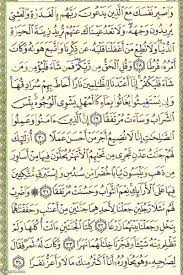 وَٱصْبِرْ نَفْسَكَ مَعَ ٱلَّذِينَ يَدْعُونَ رَبَّهُم بِٱلْغَدَوٰةِ وَٱلْعَشِىِّ
يُرِيدُونَ وَجْهَهُۥ وَلَا تَعْدُ عَيْنَاكَ عَنْهُمْ تُرِيدُ زِينَةَ ٱلْحَيَوٰةِ
ٱلدُّنْيَا وَلَا تُطِعْ مَنْ أَغْفَلْنَا قَلْبَهُۥ عَن ذِكْرِنَا وَٱتَّبَعَ هَوَىٰهُ وَكَانَ
أَمْرُهُۥ فُرُطًا ٢٨ وَقُلِ ٱلْحَقُّ مِن رَّبِّكُمْ فَمَن شَآءَ فَلْيُؤْمِن وَمَن
شَآءَ فَلْيَكْفُرْ إِنَّآ أَعْتَدْنَا لِلظَّٰلِمِينَ نَارًا أَحَاطَ بِهِمْ سُرَادِقُهَا
وَإِن يَسْتَغِيثُوا۟ يُغَاثُوا۟ بِمَآءٍ كَٱلْمُهْلِ يَشْوِى ٱلْوُجُوهَ بِئْسَ ٱلشَّرَابُ
وَسَآءَتْ مُرْتَفَقًا ٢٩ إِنَّ ٱلَّذِينَ ءَامَنُوا۟ وَعَمِلُوا۟
ٱلصَّٰلِحَٰتِ إِنَّا لَا نُضِيعُ أَجْرَ مَنْ أَحْسَنَ عَمَلًا ٣٠ أُو۟لَٰٓئِكَ
لَهُمْ جَنَّٰتُ عَدْنٍ تَجْرِى مِن تَحْتِهِمُ ٱلْأَنْهَٰرُ يُحَلَّوْنَ فِيهَا مِنْ أَسَاوِرَ
مِن ذَهَبٍ وَيَلْبَسُونَ ثِيَابًا خُضْرًا مِّن سُندُسٍ وَإِسْتَبْرَقٍ مُّتَّكِـِٔينَ
فِيهَا عَلَى ٱلْأَرَآئِكِ نِعْمَ ٱلثَّوَابُ وَحَسُنَتْ مُرْتَفَقًا ٣١ وَٱضْرِبْ
لَهُم مَّثَلًا رَّجُلَيْنِ جَعَلْنَا لِأَحَدِهِمَا جَنَّتَيْنِ مِنْ أَعْنَٰبٍ وَحَفَفْنَٰهُمَا
بِنَخْلٍ وَجَعَلْنَا بَيْنَهُمَا زَرْعًا ٣٢ كِلْتَا ٱلْجَنَّتَيْنِ ءَاتَتْ أُكُلَهَا وَلَمْ
تَظْلِم مِّنْهُ شَيْـًٔا وَفَجَّرْنَا خِلَٰلَهُمَا نَهَرًا ٣٣ وَكَانَ لَهُۥ ثَمَرٌ فَقَالَ
لِصَٰحِبِهِۦ وَهُوَ يُحَاوِرُهُۥٓ أَنَا۠ أَكْثَرُ مِنكَ مَالًا وَأَعَزُّ نَفَرًا ٣٤